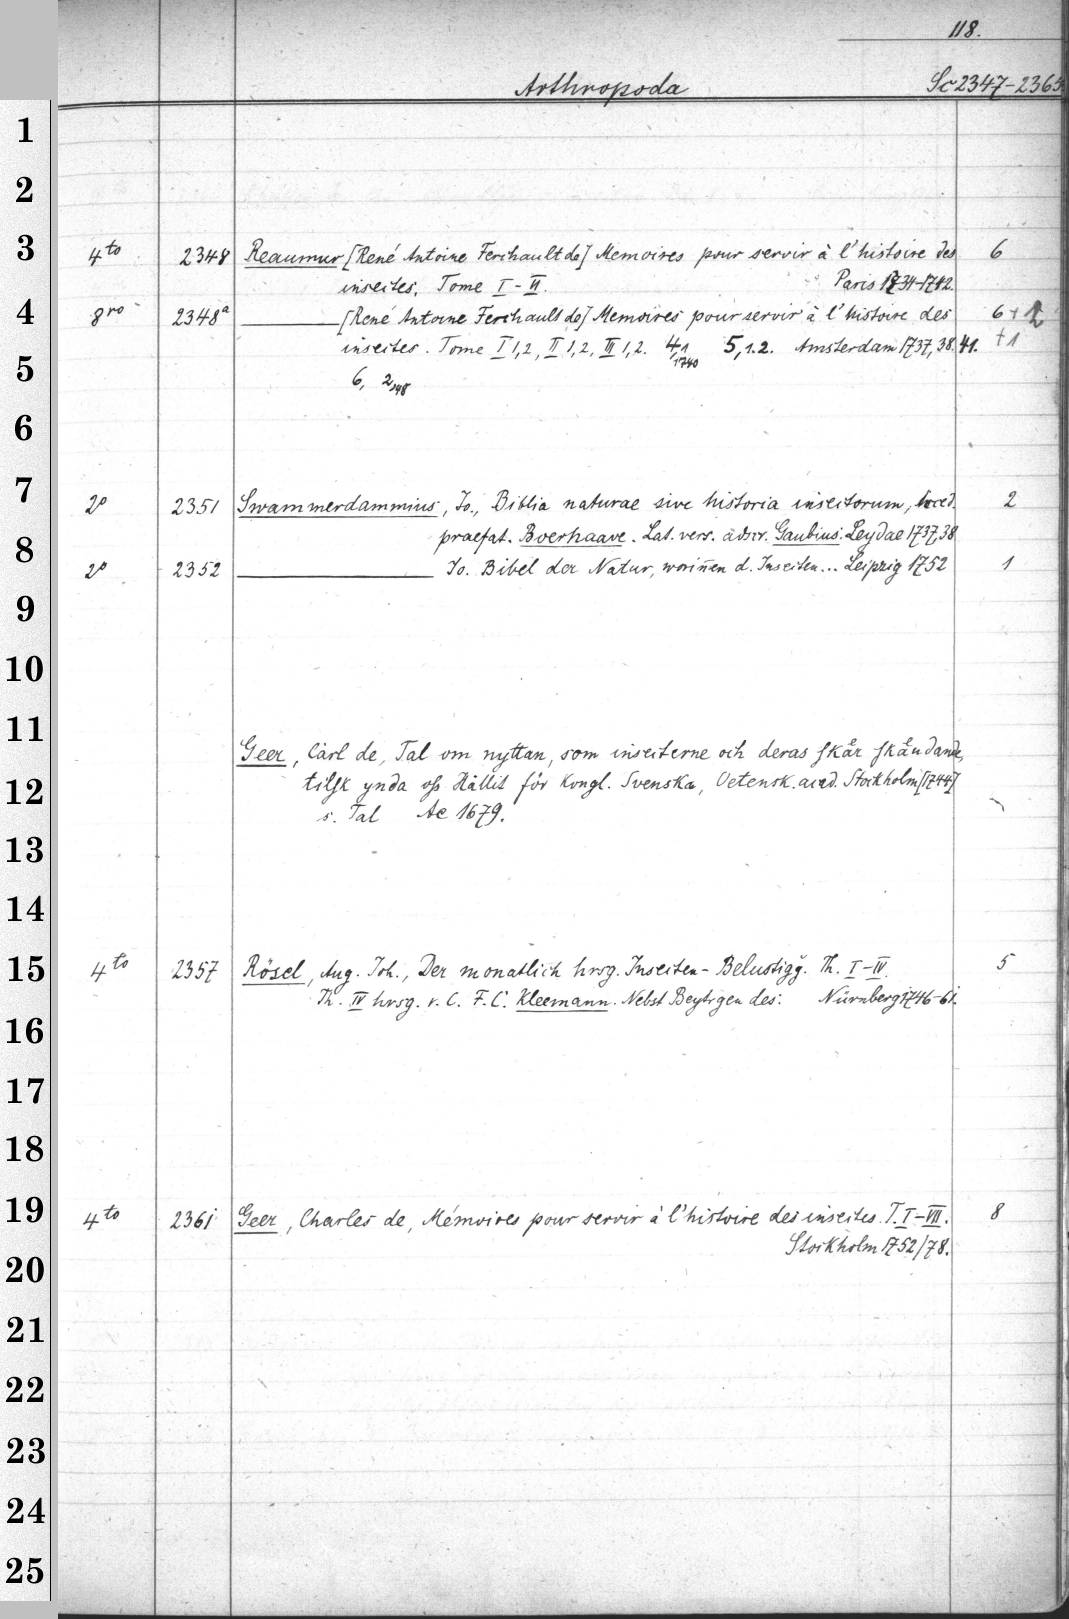 118.
Arthropoda Sc 2347-2365
1
2
3 4to 2348 Reaumur [René Antoine Ferchault de] Memoires pour servir à l'histoire des 6
insectes. Tome I-VI. Paris 1734-1742.
4 8ro 2348a [René Antoine Ferchault de] Memoires pour servir à l'histoire des 6+2
insectes. Tome I 1,2, II 1,2, III 1,2. 4,1 1740 5,1.2. Amsterdam 1737,38.41. +1
5 6, 2,48
6
7 2o 2351 Swammerdammius, Jo., Biblia naturae sive historia insectorum, 2
8 praefat. Boerhaave. Lat. vers. adscr. Gaubius. Leydae 1737,38
2o 2352 Jo. Bibel der Natur, worinnen d. Insecten... Leipzig 1752 1
9
10
11 Geer, Carl de, Tal om nyttan, som insecterne och deras
12 oss Hållit för Kongl. Svenska, Vetensk. acad. Stockholm [1744]
s. Tal Ac 1679.
13
14
15 4to 2357 Rösel, Aug. Joh., Der monatlich hrsg. Insecten-Belustigg. Th. I-IV. 5
Th. IV hrsg. v. C. F. C. Kleemann. Nebst Beytrgen des: Nürnberg 1746-61.
16
17
18
19 4to 2361 Geer, Charles de, Mémoires pour servir à l'histoire des insectes. T. I-VII. 8
20 Stockholm 1752/78.
21
22
23
24
25